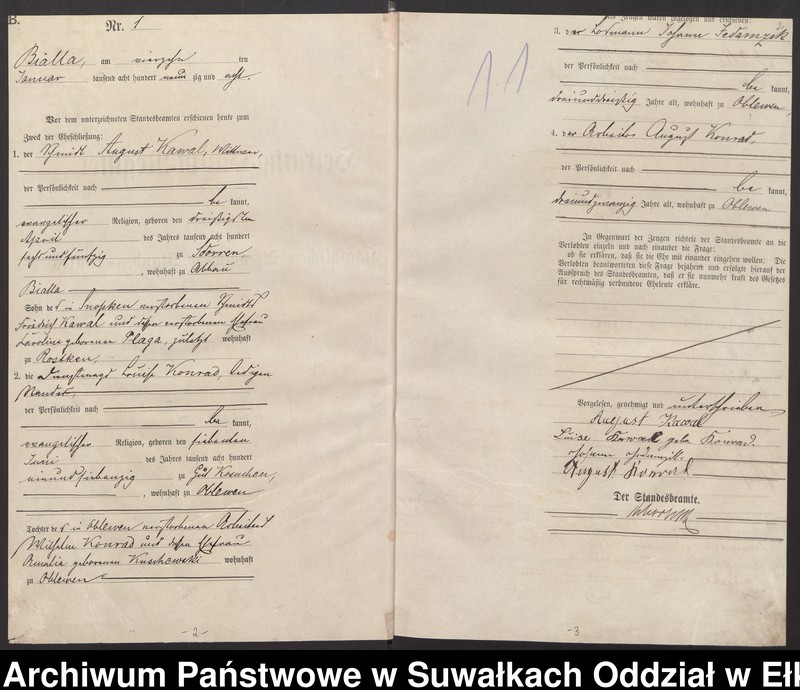 B.
Nr. 1
Bialla, am vierzehn ten
Januar tausend acht hundert neun zig und acht.
Vor dem unterzeichneten Standesbeamten erschienen heute zum
Zweck der Eheschließung:
1. der Schmidt August Kawal, Wittwer,
der Persönlichkeit nach
be kannt,
evangelischer Religion, geboren den dreißigsten
April des Jahres tausend acht hundert
sechsundfünfzig zu Sdorren
, wohnhaft zu Abbau
Bialla
Sohn des in Snopken verstorbenen Schmidts
Friedrich Kawal und dessen verstorbenen Ehefrau
Caroline geborenen Plaga, zuletzt wohnhaft
zu Rostken,
2. die Dienstmagd Louise Konrad, ledigen
Standes,
der Persönlichkeit nach
be kannt,
evangelischer Religion, geboren den siebenten
Juni des Jahres tausend acht hundert
neunundsiebenzig zu Gut
, wohnhaft zu Oblewen
Tochter des in Oblewen verstorbenen Arbeiters
Wilhelm Konrad und dessen Ehefrau
geborenen wohnhaft
zu Oblewen
- 2 -
als Zeugen waren zugezogen und erschienen:
3. der Losmann Johann Jedamzik
der Persönlichkeit nach
be kannt,
dreiunddreißig Jahre alt, wohnhaft zu Oblewen,
4. der Arbeiter August Konrad,
der Persönlichkeit nach
be kannt,
dreiundzwanzig Jahre alt, wohnhaft zu Oblewen
In Gegenwart der Zeugen richtete der Standesbeamte an die
Verlobten einzeln und nach einander die Frage:
ob sie erklären, daß sie die Ehe mit einander eingehen wollen. Die
Verlobten beantworteten diese Frage bejahend und erfolgte hierauf der
Ausspruch des Standesbeamten, daß er sie nunmehr kraft des Gesetzes
für rechtmäßig verbundene Eheleute erkläre.
Vorgelesen, genehmigt und unterschrieben
August Kawal
Luise Kawal geb. Konrad.
Johann Jedamzik.
August Konrad
Der Standesbeamte.
- 3
Archiwum Państwowe w Suwałkach Oddział w Ełk